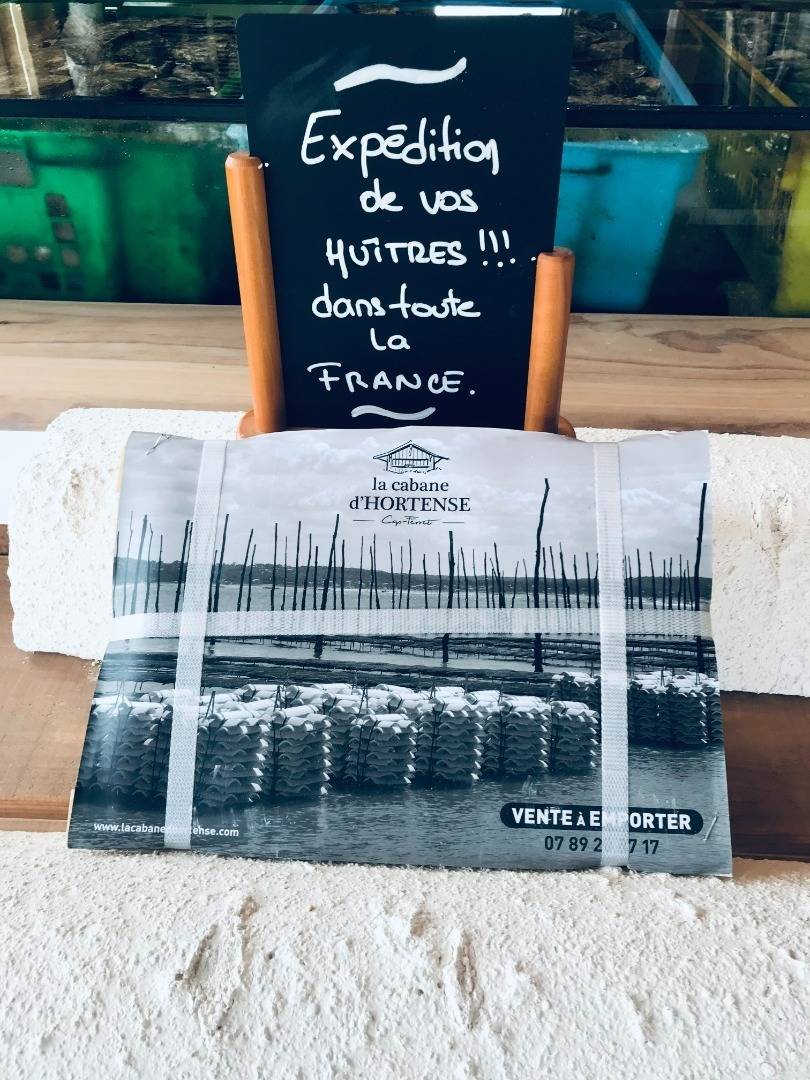 Expédition
de vos
HUÎTRES !!!
dans toute
la
FRANCE.
la cabane
d'HORTENSE
Cap-Ferret
VENTE À EMPORTER
07 89 2 7 17